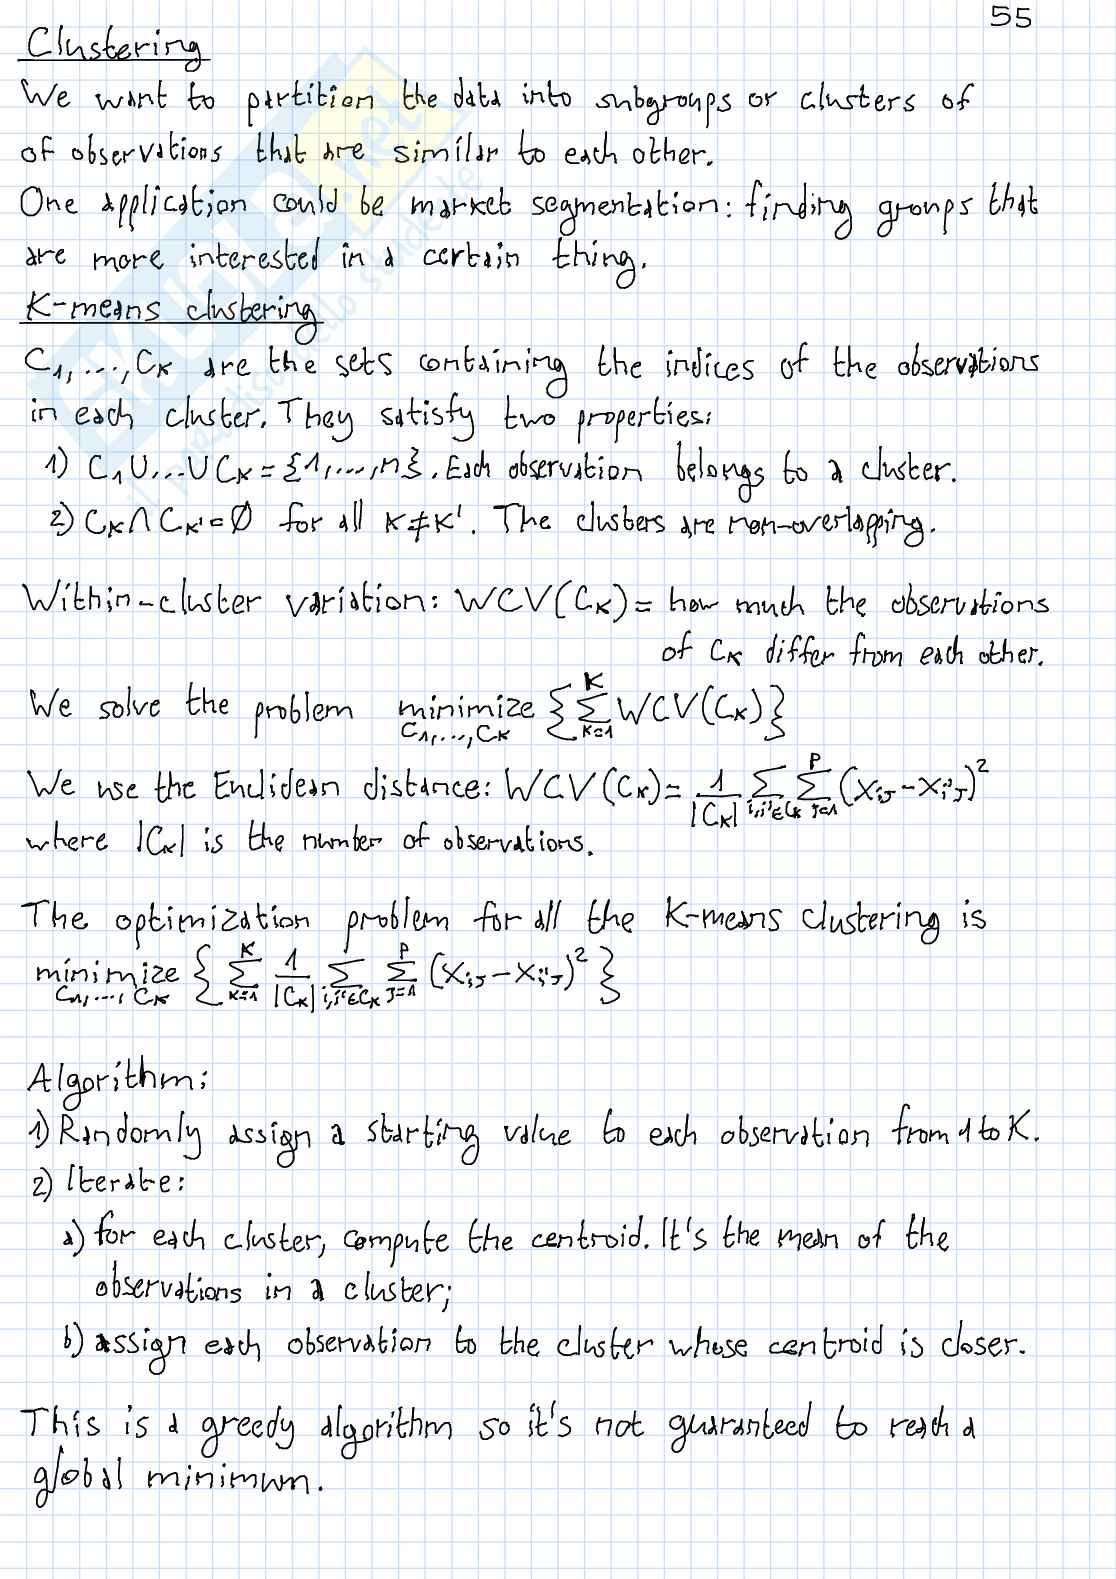 55
Clustering
We want to partition the data into subgroups or clusters of
of observations that are similar to each other.
One application could be market segmentation: finding groups that
are more interested in a certain thing.
K-means clustering
C₁,...,Cₖ are the sets containing the indices of the observations
in each cluster. They satisfy two properties:
1) C₁∪...∪Cₖ={1,...,n}. Each observation belongs to a cluster.
2) Cₖ∩Cₖ'=∅ for all K≠K'. The clusters are non-overlapping.
Within-cluster variation: WCV(Cₖ)= how much the observations
of Cₖ differ from each other.
We solve the problem minimize_{C₁,...,Cₖ} {∑_{K=1}^{K} WCV(Cₖ)}
We use the Euclidean distance: WCV(Cₖ)= 1/|Cₖ| ∑_{i,i'∈Cₖ} ∑_{j=1}^{p} (x_{ij}-x_{i'j})²
where |Cₖ| is the number of observations.
The optimization problem for all the K-means clustering is
minimize_{C₁,...,Cₖ} {∑_{K=1}^{K} 1/|Cₖ| ∑_{i,i'∈Cₖ} ∑_{j=1}^{p} (x_{ij}-x_{i'j})²}
Algorithm:
1) Randomly assign a starting value to each observation from 1 to K.
2) Iterate:
a) for each cluster, compute the centroid. It's the mean of the
observations in a cluster;
b) assign each observation to the cluster whose centroid is closer.
This is a greedy algorithm so it's not guaranteed to reach a
global minimum.